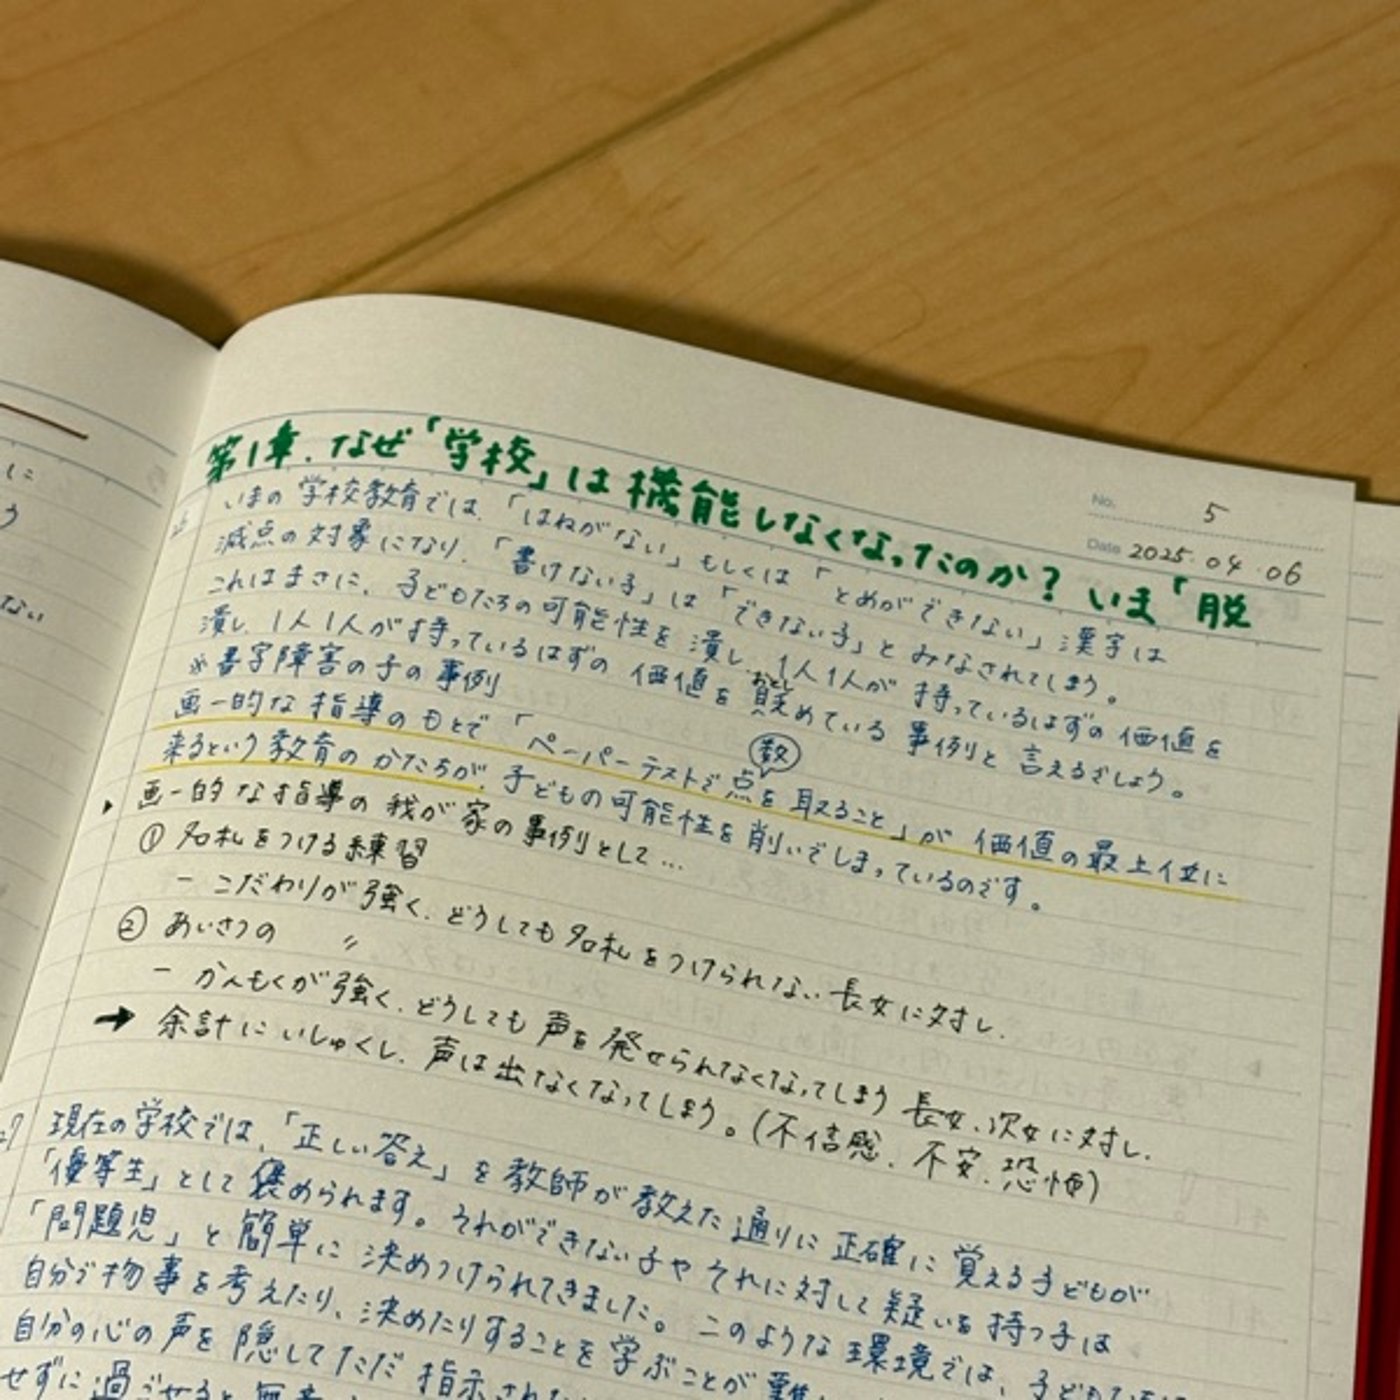 に
う
ない
No. 5
Date 2025.04.06
第1章. なぜ「学校」は機能しなくなったのか? いま「脱
いまの学校教育では、「はねがない」もしくは「とめができない」漢字は
減点の対象になり、「書けない子」は「できない子」とみなされてしまう。
これはまさに、子どもたちの可能性を潰し、1人1人が持っているはずの価値を
潰し、1人1人が持っているはずの価値を貶めている事例と言えるでしょう。
おとし
※書字障害の子の事例
画一的な指導のもとで「ペーパーテストで点を取ること」が価値の最上位に
数
来るという教育のかたちが、子どもの可能性を削いでしまっているのです。
▸ 画一的な指導の我が家の事例として…
① 名札をつける練習
− こだわりが強く、どうしても名札をつけられない長女に対し、
② あいさつの 〃
− かんもくが強く、どうしても声を発せられなくなってしまう長女、次女に対し、
→ 余計にいしゅくし、声は出なくなってしまう。(不信感、不安、恐怖)
27 現在の学校では、「正しい答え」を教師が教えた通りに正確に覚える子どもが
「優等生」として褒められます。それができない子やそれに対して疑いを持つ子は
「問題児」と簡単に決めつけられてきました。このような環境では、子どもたちは
自分で物事を考えたり、決めたりすることを学ぶことが難
自分の心の声を隠してただ指示された
せずに過ごせると